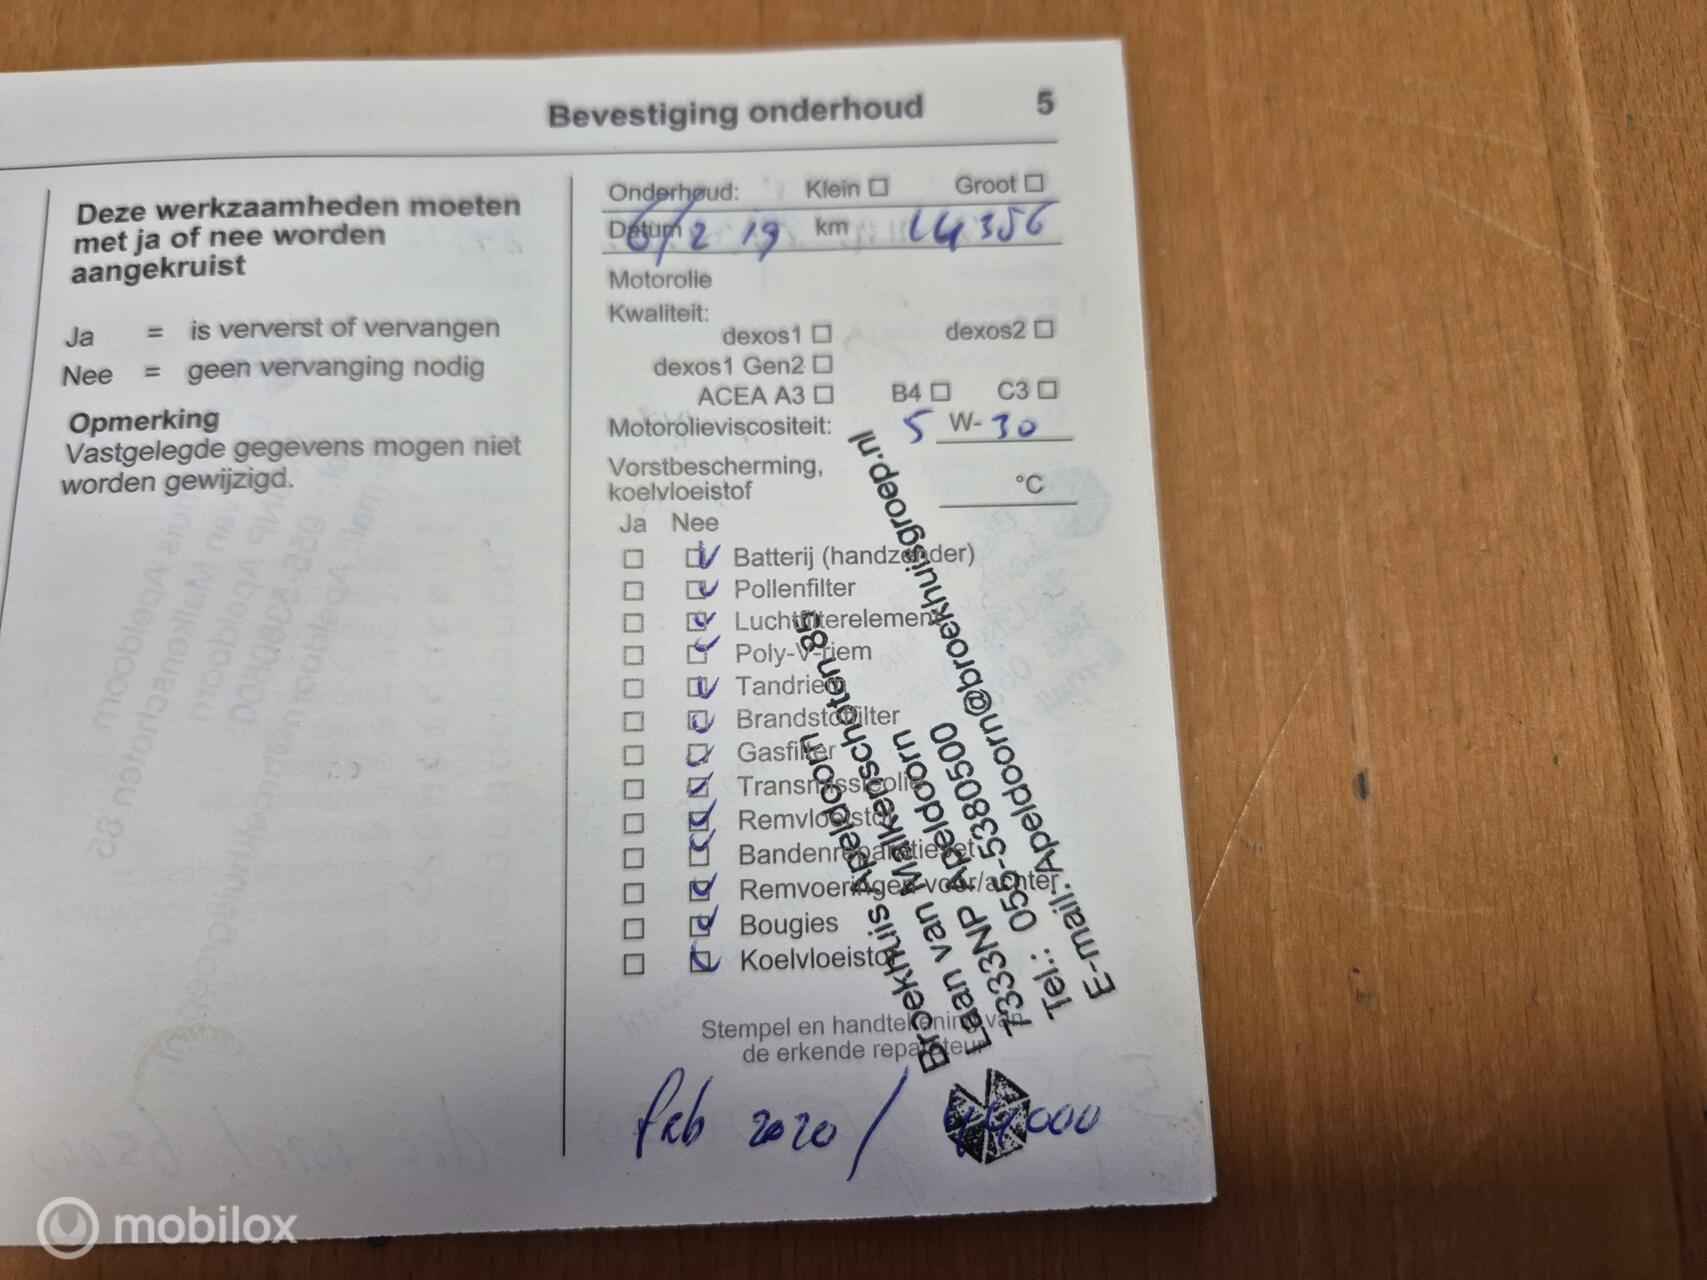 Bevestiging onderhoud 5
Deze werkzaamheden moeten
met ja of nee worden
aangekruist
Ja = is ververst of vervangen
Nee = geen vervanging nodig
Opmerking
Vastgelegde gegevens mogen niet
worden gewijzigd.
Onderhoud: Klein Groot
Datum 6/2 19 km 14356
Motorolie
Kwaliteit:
dexos1 dexos2
dexos1 Gen2
ACEA A3 B4 C3
Motorolieviscositeit: 5 W-30
Vorstbescherming,
koelvloeistof °C
Ja Nee
Batterij (handzender)
Pollenfilter
Luchtfilterelement
Poly-V-riem
Tandriem
Brandstoffilter
Gasfilter
Transmissieolie
Remvloeistof
Bandenreparatieset
Remvoeringen voor/achter
Bougies
Koelvloeistof
Stempel en handtekening van
de erkende reparateur
Broekhuis Apeldoorn
Laan van Malkenschoten 85
7333NP Apeldoorn
Tel.: 055-5380500
E-mail: Apeldoorn@broekhuisgroep.nl
feb 2020 / 44000
mobilox